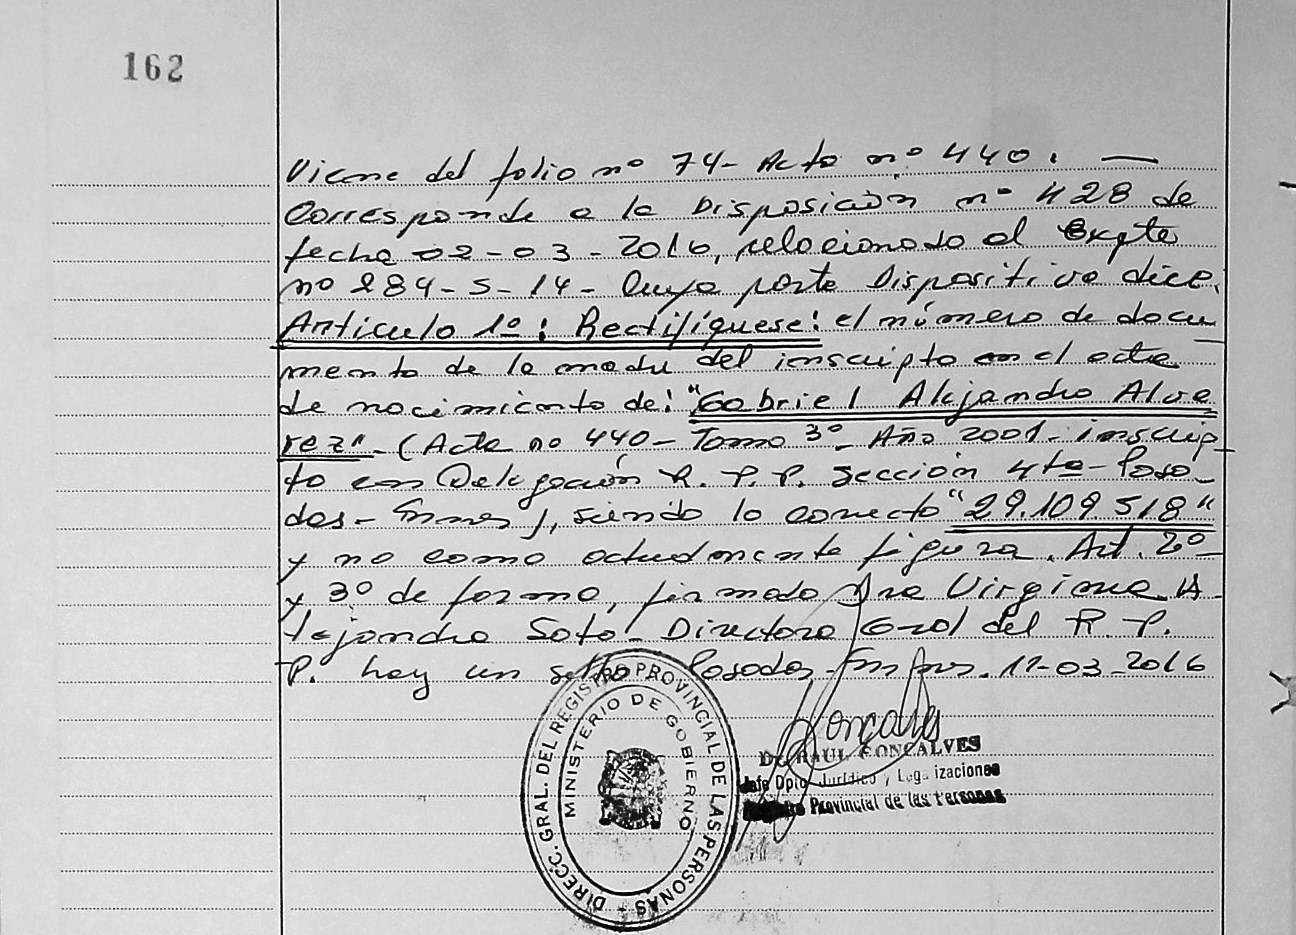 162
Viene del folio nº 74- Acta nº 440. —
Corresponde a la Disposición nº 428 de
fecha 02-03-2016, relacionado al Expte
nº 284-S-14- Cuya parte Dispositiva dice:
Articulo 1º: Rectifíquese: el número de docu
mento de la madre del inscripto en el acta
de nacimiento de: "Gabriel Alejandro Alva
rez" (Acta nº 440- Tomo 3º- Año 2001- inscrip
to en Delegación R. P. P. sección 4ta- Posa-
das- ), siendo lo correcto "29.109.518"
y no como actualmente figura. Art. 2º-
y 3º de forma, firmado Dra Virginia A-
lejandra Soto- Directora Gral del R. P.
P. hay un sello Posadas 17-03-2016
DIRECC. GRAL. DEL REGISTRO PROVINCIAL DE LAS PERSONAS
MINISTERIO DE GOBIERNO
Goncalves
RAUL GONCALVES
Jefe Dpto Jurídico y Legalizaciones
Registro Provincial de las Personas